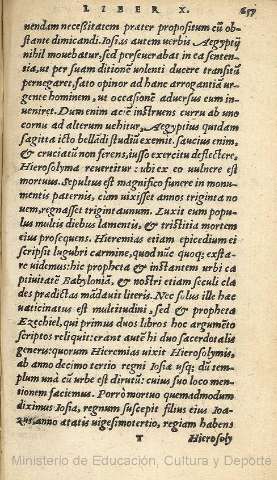 LIBER X. 657
nendam necessitatem præter propositum cū ob-
stante dimicandi. Iosias autem uerbis Aegyptij
nihil mouebatur, sed perseuerabat in ea senten-
tia, ut per suam ditionē uolenti ducere transitū
pernegaret, fato opinor ad hanc arrogantiā ur-
gente hominem, ut occasionē aduersus eum in-
ueniret. Dum enim aciē instruens curru ab uno
cornu ad alterum uehitur, Aegyptius quidam
sagitta icto bellādi studiū exemit. saucius enim,
& cruciatū non ferens, iusso exercitu deflectere,
Hierosolyma reuertitur: ubi ex eo uulnere est
mortuus. Sepultus est magnifico funere in monu-
mentis paternis, cum uixisset annos triginta no
uem, regnasset triginta unum. Luxit eum popu-
lus multis diebus lamentis, & tristitia mortem
eius prosequens. Hieremias etiam epicedium ei
scripsit lugubri carmine, quod nūc quoq; exsta-
re uidemus: hic propheta & instantem urbi ca
ptiuitatē Babyloniā, & nostri etiam seculi cla
des prædictas mādauit literis. Nec solus ille hæc
uaticinatus est multitudini, sed & propheta
Ezechiel, qui primus duos libros hoc argumēto
scriptos reliquit: erant autē hi duo sacerdotalis
generis: quorum Hieremias uixit Hierosolymis,
ab anno decimo tertio regni Iosiæ usq; dū tem-
plum unā cū urbe est dirutū: cuius suo loco men-
tionem faciemus. Porrò mortuo quemadmodum
diximus Iosia, regnum suscepit filius eius Ioa-
zus, anno ætatis uigesimotertio, regiam habens
T Hierosoly
Ministerio de Educación, Cultura y Deporte